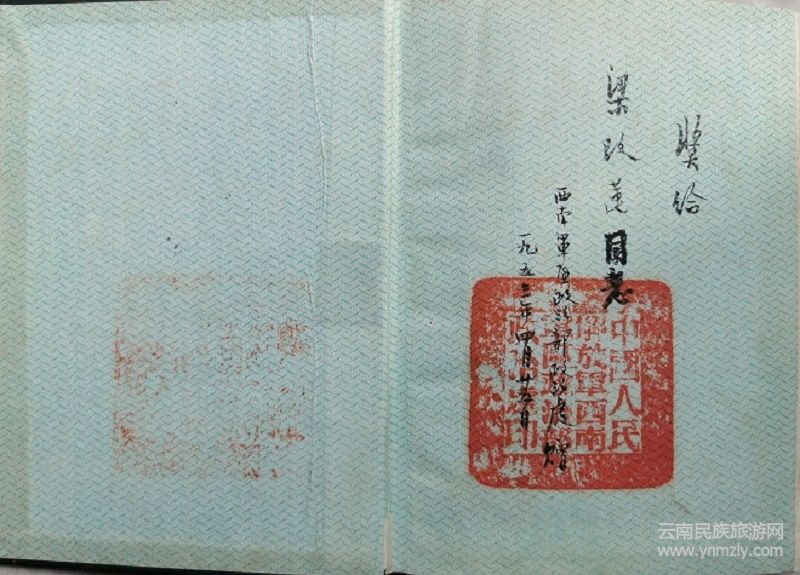 奬给
梁改莲同志
西南軍區政治部政處贈
一九五年四月廿五日
中國人民
解放軍西南
軍區政治部
政處印
云南民族旅游网
www.ynmzly.com